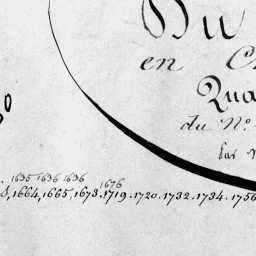 Du
en C
Qua
du N.o
1635 1636 1636
1676
1664, 1665, 1673. 1719. 1720. 1732. 1734. 1756